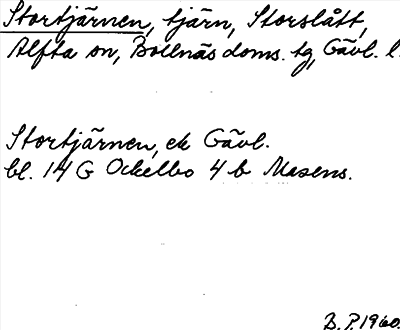 Stortjärnen, tjärn, Storslått,
Alfta sn, Bollnäs doms. tg, Gävl. l.
Stortjärnen, ek Gävl.
bl. 14 G Ockelbo 4 b Masens.
B. P. 1960.